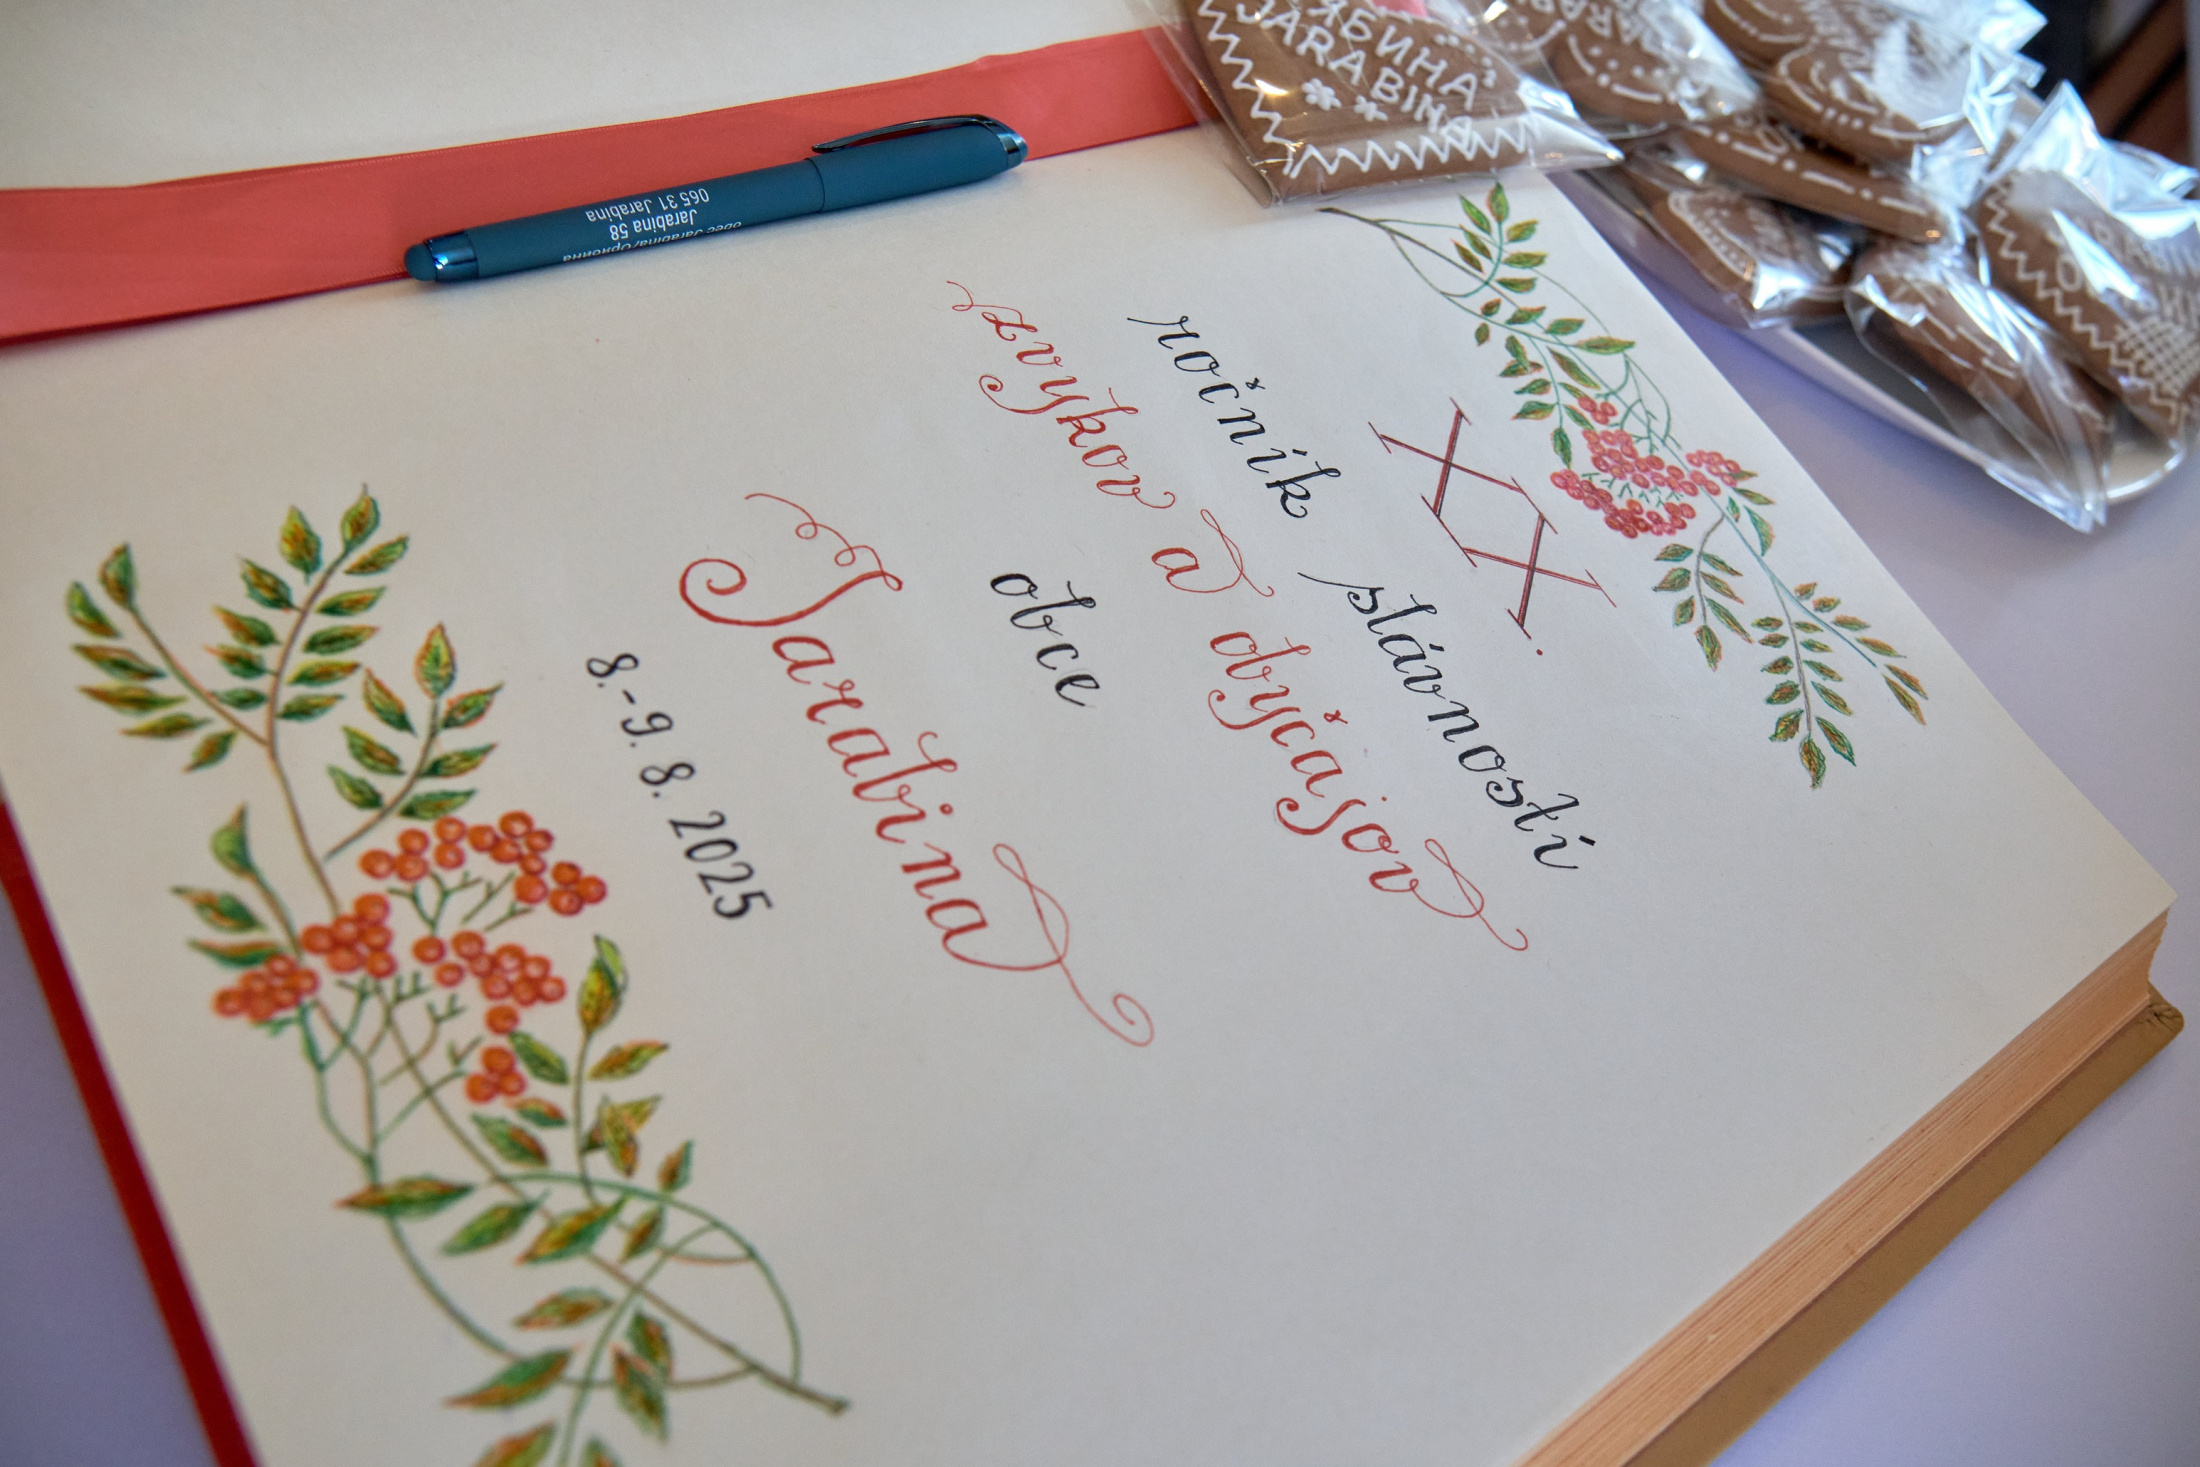 XX.
ročník slávností
zvykov a obyčajov
obce
Jarabina
8.-9. 8. 2025
obec Jarabina/Орябина
Jarabina 58
065 31 Jarabina
ЯБИНА
JARABINA